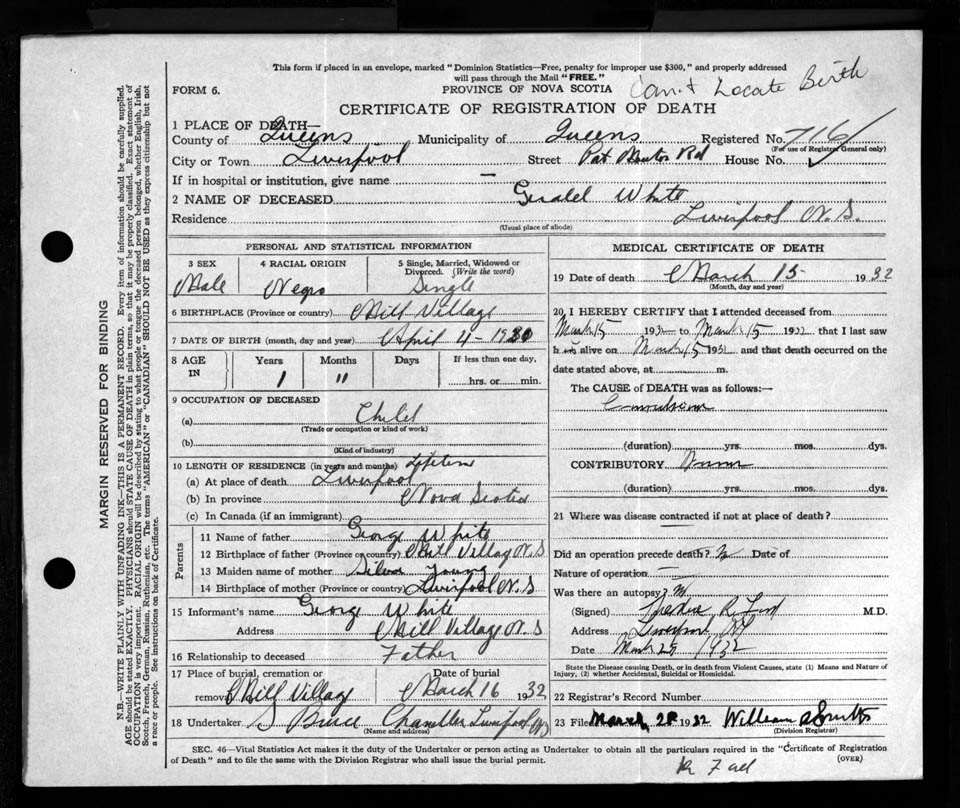 This form if placed in an envelope, marked "Dominion Statistics—Free, penalty for improper use $300," and properly addressed
will pass through the Mail "FREE."
FORM 6.
PROVINCE OF NOVA SCOTIA
Locate Birth
CERTIFICATE OF REGISTRATION OF DEATH
1 PLACE OF DEATH—
County of Queens Municipality of Queens Registered No. 716
(For use of Registrar General only)
City or Town Liverpool Street Rd House No.
If in hospital or institution, give name —
2 NAME OF DECEASED White
Residence Liverpool N. S.
(Usual place of abode)
PERSONAL AND STATISTICAL INFORMATION
3 SEX 4 RACIAL ORIGIN 5 Single, Married, Widowed or Divorced. (Write the word)
Male Negro Single
6 BIRTHPLACE (Province or country) Mill Village
7 DATE OF BIRTH (month, day and year) April 4 - 1930
8 AGE IN Years Months Days If less than one day,
1 11 hrs. or min.
9 OCCUPATION OF DECEASED
(a) Child
(Trade or occupation or kind of work)
(b)
(Kind of industry)
10 LENGTH OF RESIDENCE (in years and months) Lifetime
(a) At place of death Liverpool
(b) In province Nova Scotia
(c) In Canada (if an immigrant)
Parents
11 Name of father George White
12 Birthplace of father (Province or country) Mill Village N. S
13 Maiden name of mother Young
14 Birthplace of mother (Province or country) Liverpool N. S
15 Informant's name George White
Address Mill Village N. S
16 Relationship to deceased Father
17 Place of burial, cremation or removal Mill Village Date of burial March 16 1932
18 Undertaker Chandler Liverpool NS
(Name and address)
MEDICAL CERTIFICATE OF DEATH
19 Date of death March 15 1932
(Month, day and year)
20 I HEREBY CERTIFY that I attended deceased from
March 15 1932 to March 15 1932 that I last saw
h alive on March 15 1932 and that death occurred on the
date stated above, at m.
The CAUSE of DEATH was as follows:—
(duration) yrs. mos. dys.
CONTRIBUTORY
(duration) yrs. mos. dys.
21 Where was disease contracted if not at place of death?
Did an operation precede death? Date of
Nature of operation —
Was there an autopsy?
(Signed) M.D.
Address
Date March 29 1932
State the Disease causing Death, or in death from Violent Causes, state (1) Means and Nature of
Injury, (2) whether Accidental, Suicidal or Homicidal.
22 Registrar's Record Number
23 Filed March 1932 William Smith
(Division Registrar)
SEC. 46—Vital Statistics Act makes it the duty of the Undertaker or person acting as Undertaker to obtain all the particulars required in the "Certificate of Registration
of Death" and to file the same with the Division Registrar who shall issue the burial permit.
(OVER)
MARGIN RESERVED FOR BINDING
N.B.—WRITE PLAINLY WITH UNFADING INK—THIS IS A PERMANENT RECORD. Every item of information should be carefully supplied.
AGE should be stated EXACTLY. PHYSICIANS should STATE CAUSE OF DEATH in plain terms, so that it may be properly classified. Exact statement of
OCCUPATION is very important. RACIAL ORIGIN will be described by stating to what people or tongue the deceased person belonged, whether English, Irish,
Scotch, French, German, Russian, Ruthenian, etc. The terms "AMERICAN" or "CANADIAN" SHOULD NOT BE USED as they express citizenship but not
a race or people. See instructions on back of Certificate.